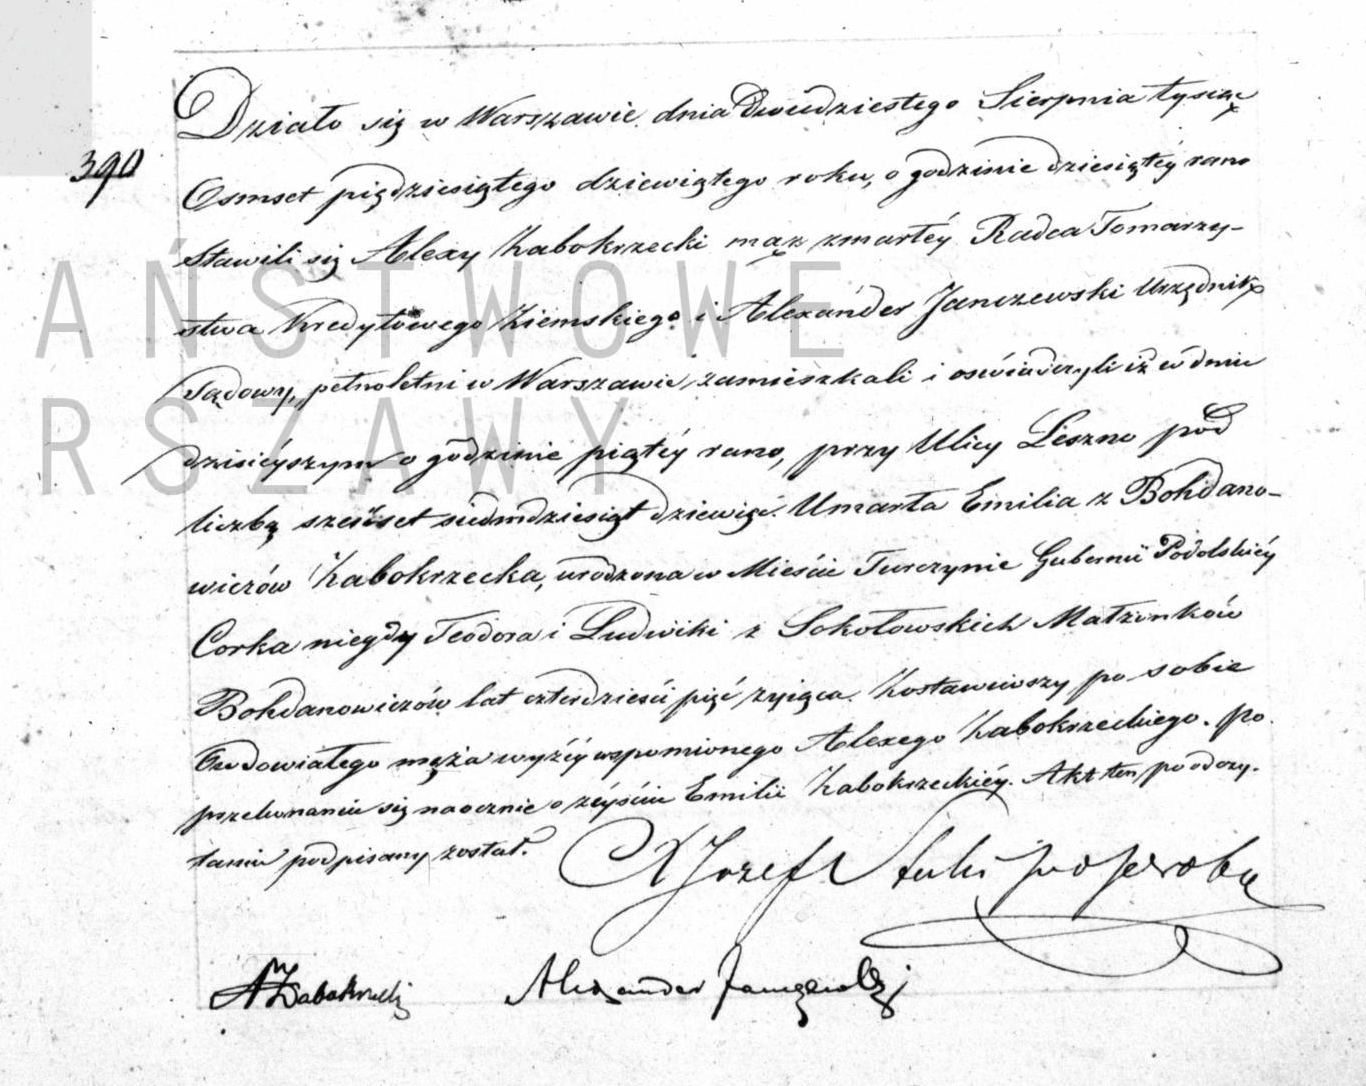 Działo się w Warszawie dnia Dwudziestego Sierpnia tysiąc
390
Osmset pięдziesiątego dziewiątego roku, o godzinie dziesiątéy rano
Stawili się Alexy Zabokrzecki mąż zmartéy Radca Towarzy-
stwa Kredytowego Ziemskiego i Alexánder Janczewski Urzędnik
Sądowy, pełnoletni w Warszawie zamieszkali i oświadczyli iż w dniu
dzisieyszym o godzinie piątéy rano, przy Ulicy Leszno pod
liczbą sześćset siedmdziesiąt dziewięć. Umarła Emilia z Bohdano-
wiczów Zabokrzecka, urodzona w Mieście Turczynie Gubernii Podolskiéy
Corka niegdy Teodora i Ludwiki z Sokołowskich Małżonków
Bohdanowiczów lat czterdzieści pięć żyiąca. Zostawiwszy po sobie
Owdowiałego męża wyżéy wspomionego Alexego Zabokrzeckiego. po
przekonaniu się naocznie o zéyściu Emilii Zabokrzeckiéy. Akt ten po odczy-
taniu podpisany został.
X Jozef
A Zabokrzecki
Alexander Janczewski
AŃSTWOWE
RSZAWY